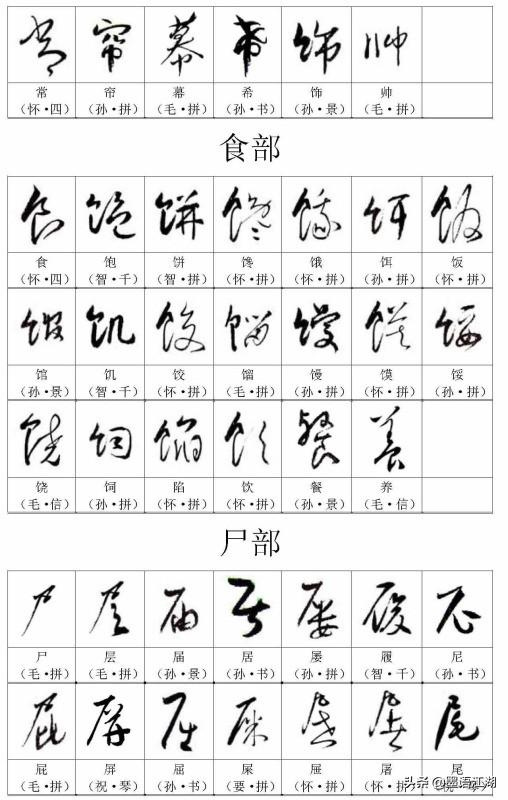 常 帘 幕 希 饰 帅
（怀·四） （孙·拼） （毛·拼） （孙·书） （孙·景） （毛·拼）
食部
食 饱 饼 馋 饿 饵 饭
（怀·四） （智·千） （智·拼） （怀·拼） （怀·拼） （孙·拼） （怀·拼）
馆 饥 饺 馏 馒 馍 馁
（孙·景） （智·千） （怀·拼） （毛·拼） （孙·拼） （怀·拼） （孙·拼）
饶 饲 陷 饮 餐 养
（毛·信） （孙·拼） （怀·拼） （怀·拼） （孙·景） （毛·信）
尸部
尸 层 届 居 屡 履 尼
（毛·拼） （毛·拼） （孙·景） （孙·书） （孙·拼） （智·千） （孙·书）
屁 屏 屈 屎 屉 屠 尾
（毛·拼） （祝·琴） （孙·书） （要·拼） （怀·拼） （怀·拼）
头条 @墨语江湖